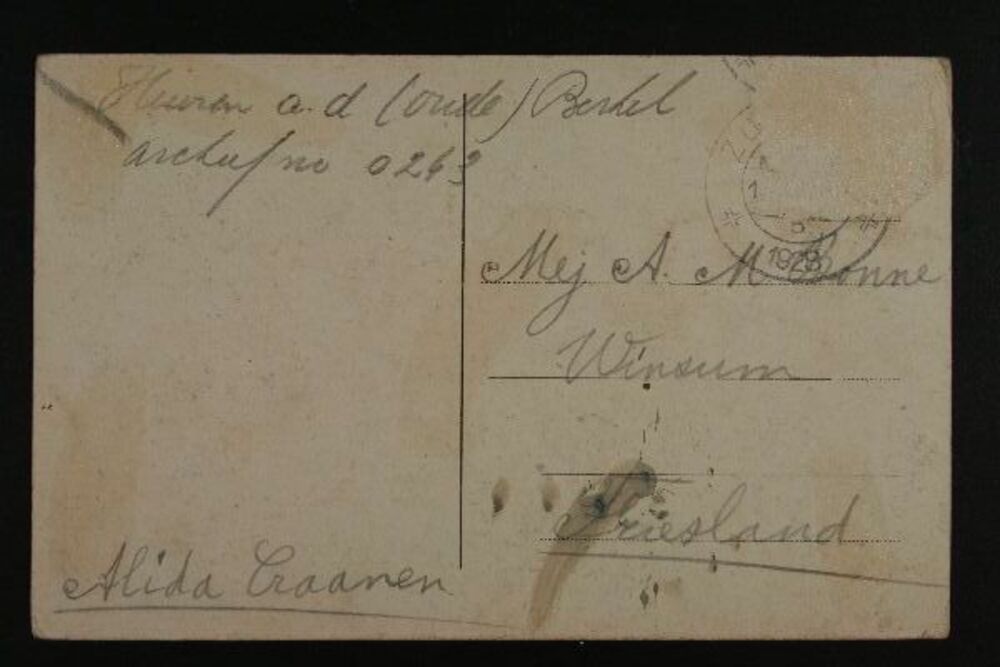 a.d (oude) Berkel
archief no 0263
ZU
1
1928
Mej A. M Bonne
Winsum
Friesland
Alida Craanen